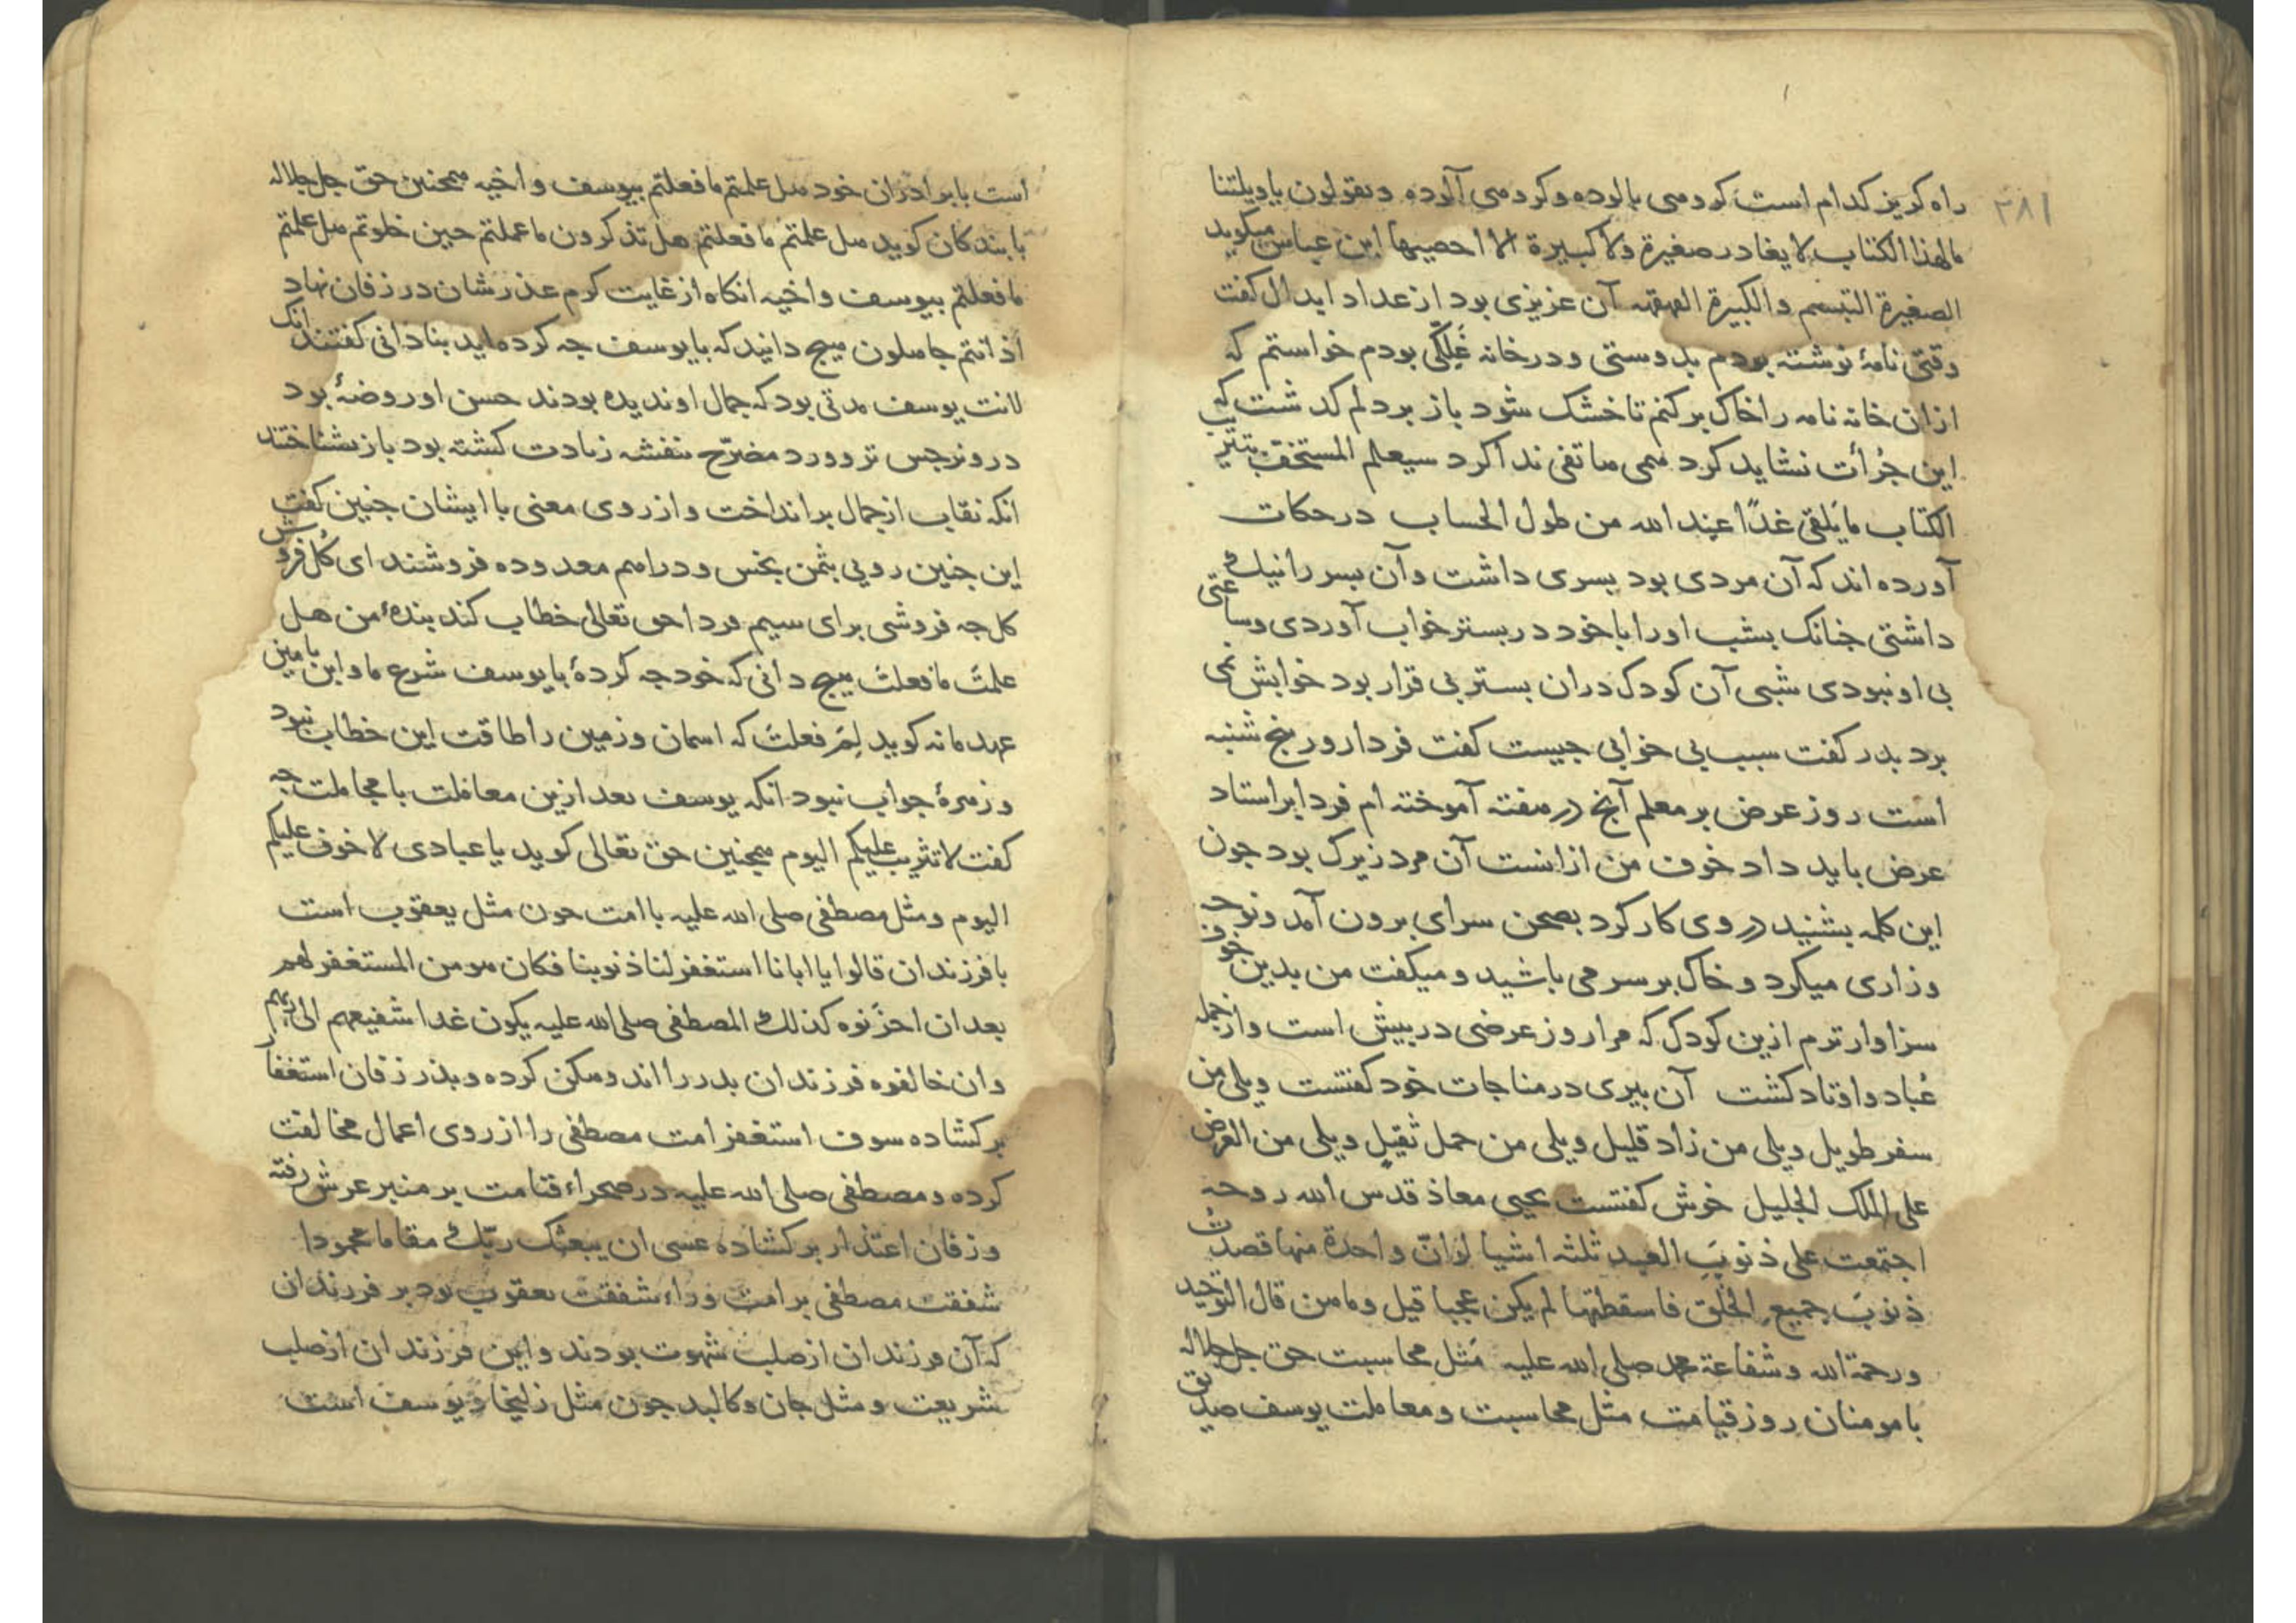 ۲۸۱
راه کریز کدام است کرومی بالوده وکرومی آلوده ویقولون یاویلتنا
مالهذا الکتاب لایغادر صغیرة ولا کبیرة الا احصیها ابن عباس میکوید
الصغیرة التبسم والکبیرة القهقهه آن عزیزی بود از عداد ابدال کفت
وقتی نامهٔ نوشته بودم بدوستی ودرخانه غلّکی بودم خواستم که
ازان خانه نامه را خاک برکنم تا خشک شود باز بردلم کدشت که
این جرأت نشاید کرد همی هاتفی ندا کرد سیعلم المستخف بتتریب
الکتاب مایلقی غدًا عند الله من طول الحساب درحکات
آورده اند که آن مردی بود بسری داشت وآن بسر رانیک
داشتی جنانک بشب اورا باخود در بستر خواب آوردی وساعتی
بی او نبودی شبی آن کودک دران بستر بی قرار بود خوابش نمی
برد بدر کفت سبب بی خوابی جیست کفت فردا روربنج شنبه
است روز عرض بر معلم آنج درهفته آموخته ام فردا براستاد
عرض باید داد خوف من ازانست آن مرد زیرک بود جون
این کلمه بشنید دروی کار کرد بصحن سرای برون آمد ونوحه
وزاری میکرد وخاک برسر می باشید ومیکفت من بدین خوف
سزاوارترم ازین کودک که مرا روز عرضی دربیش است وازجمله
عُباد واوتاد کشت آن بیری درمناجات خود کفتست ویلی من
سفر طویل ویلی من زاد قلیل ویلی من حمل ثقیل ویلی من العرض
علی الملک الجلیل خوش کفتست یحیی معاذ قدس الله روحه
اجتمعت علی ذنوب العبد ثلثه اشیا لوانّ واحدة منها قصدت
ذنوب جمیع الخلق فاسقطتها لم یکن عجبا قیل وماهن قال التوحید
ورحمة الله وشفاعة محمد صلی الله علیه مَثل محاسبت حق جل جلاله
بامومنان روز قیامت مثل محاسبت ومعاملت یوسف صدیق
است بابرادران خود هل علمتم مافعلتم بیوسف واخیه همجنین حق جل جلاله
بابندکان کوید هل علمتم مافعلتم هل تذکرون ماعملتم حین خلوتم هل علمتم
مافعلتم بیوسف واخیه انکاه ازغایت کرم عذرشان درزفان نهاد
اذ انتم جاهلون هیج دانیدکه بایوسف جه کرده اید بنادانی کفتند انک
لانت یوسف مدتی بود که جمال او ندیده بودند حسن اوروضهٔ بود
درو نرجس تر وورد مضرّح بنفشه زیادت کشته بود باز نشناختند
انکه نقاب ازجمال برانداخت وازروی معنی باایشان جنین کفت
این جنین رویی بثمن بخس ودراهم معدوده فروشند ای کل فروش
کل جه فروشی برای سیم فردا حق تعالی خطاب کند بندهٔ من هل
علمتَ مافعلتَ هیج دانی که خود جه کردهٔ بایوسف شرع ما وابن یامین
عهد مانه کوید لِمَ فعلتَ که اسمان وزمین را طاقت این خطاب نبود
وزهرهٔ جواب نبود انکه یوسف بعد ازین معاملت بامجاملت جه
کفت لاتثریب علیکم الیوم همجنین حق تعالی کوید یاعبادی لاخوف علیکم
الیوم ومثل مصطفی صلی الله علیه باامت جون مثل یعقوب است
بافرزندان قالوا یاابانا استغفر لنا ذنوبنا فکان هو من المستغفر لهم
بعد ان احزنوه کذلک المصطفی صلی الله علیه یکون غدا شفیعهم الی ربهم
وان خالفوه فرزندان بدر را اندوهکن کرده وبذر زفان استغفار
برکشاده سوف استغفر امت مصطفی را ازروی اعمال مخالفت
کرده ومصطفی صلی الله علیه درصحراء قیامت بر منبر عرش رفته
وزفان اعتذار برکشاده عسی ان یبعثک ربّک مقاما محمودا
شفقت مصطفی برامت وراء شفقت یعقوب بود بر فرزندان
که آن فرزندان ازصلب شهوت بودند واین فرزندان ازصلب
شریعت ومثل جان وکالبد جون مثل زلیخا ویوسف است